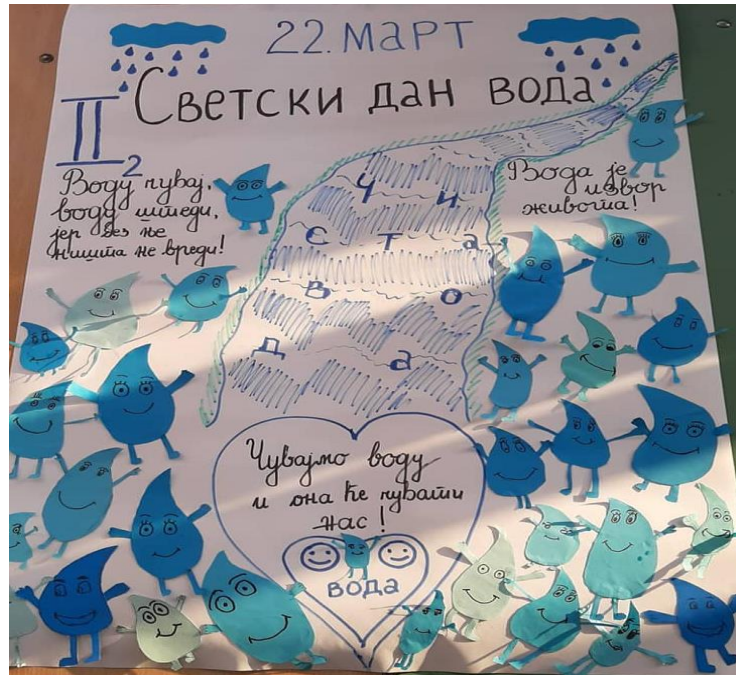 22. МАРТ
Светски дан вода
II2
Воду чувај,
воду штеди,
јер без ње
ништа не вреди!
Вода је
извор
живота!
Чи
ста
во
да
Чувајмо воду
и она ће чувати
нас!
вода